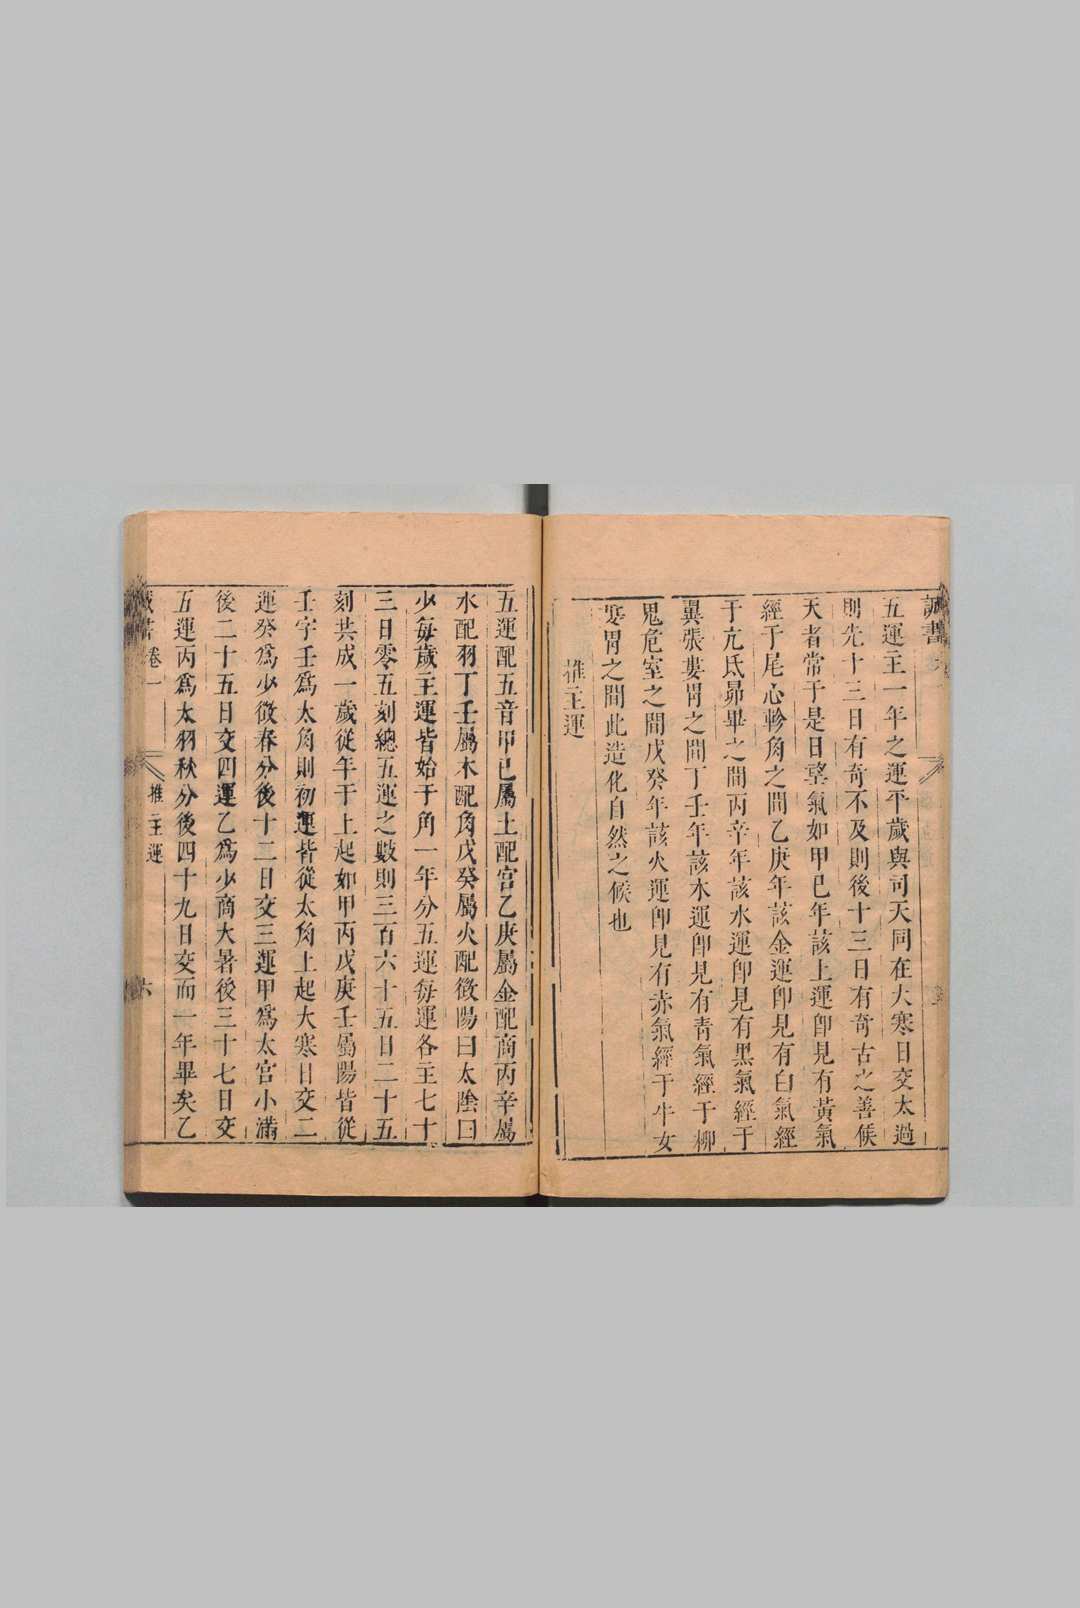 五運主一年之運平歲與司天同在大寒日交太過
則先十三日有奇不及則後十三日有奇古之善候
天者常于是日望氣如甲巳年該土運卽見有黃氣
經于尾心軫角之間乙庚年該金運卽見有白氣經
于亢氐昴畢之間丙辛年該水運卽見有黑氣經于
翼張婁胃之間丁壬年該木運卽見有青氣經于柳
鬼危室之間戊癸年該火運卽見有赤氣經于牛女
寒胃之間此造化自然之候也
推主運
五運配五音甲己屬土配宮乙庚屬金配商丙辛屬
水配羽丁壬屬木配角戊癸屬火配徵陽曰太陰曰
少每歲主運皆始于角一年分五運每運各主七十
三日零五刻總五運之數則三百六十五日二十五
刻共成一歲從年干上起如甲丙戊庚壬屬陽皆從
壬字壬爲太角則初運皆從太角上起大寒日交二
運癸爲少徵春分後十二日交三運甲爲太宮小滿
後二十五日交四運乙爲少商大暑後三十七日交
五運丙爲太羽秋分後四十九日交而一年畢矣乙
卷一
推主運
六